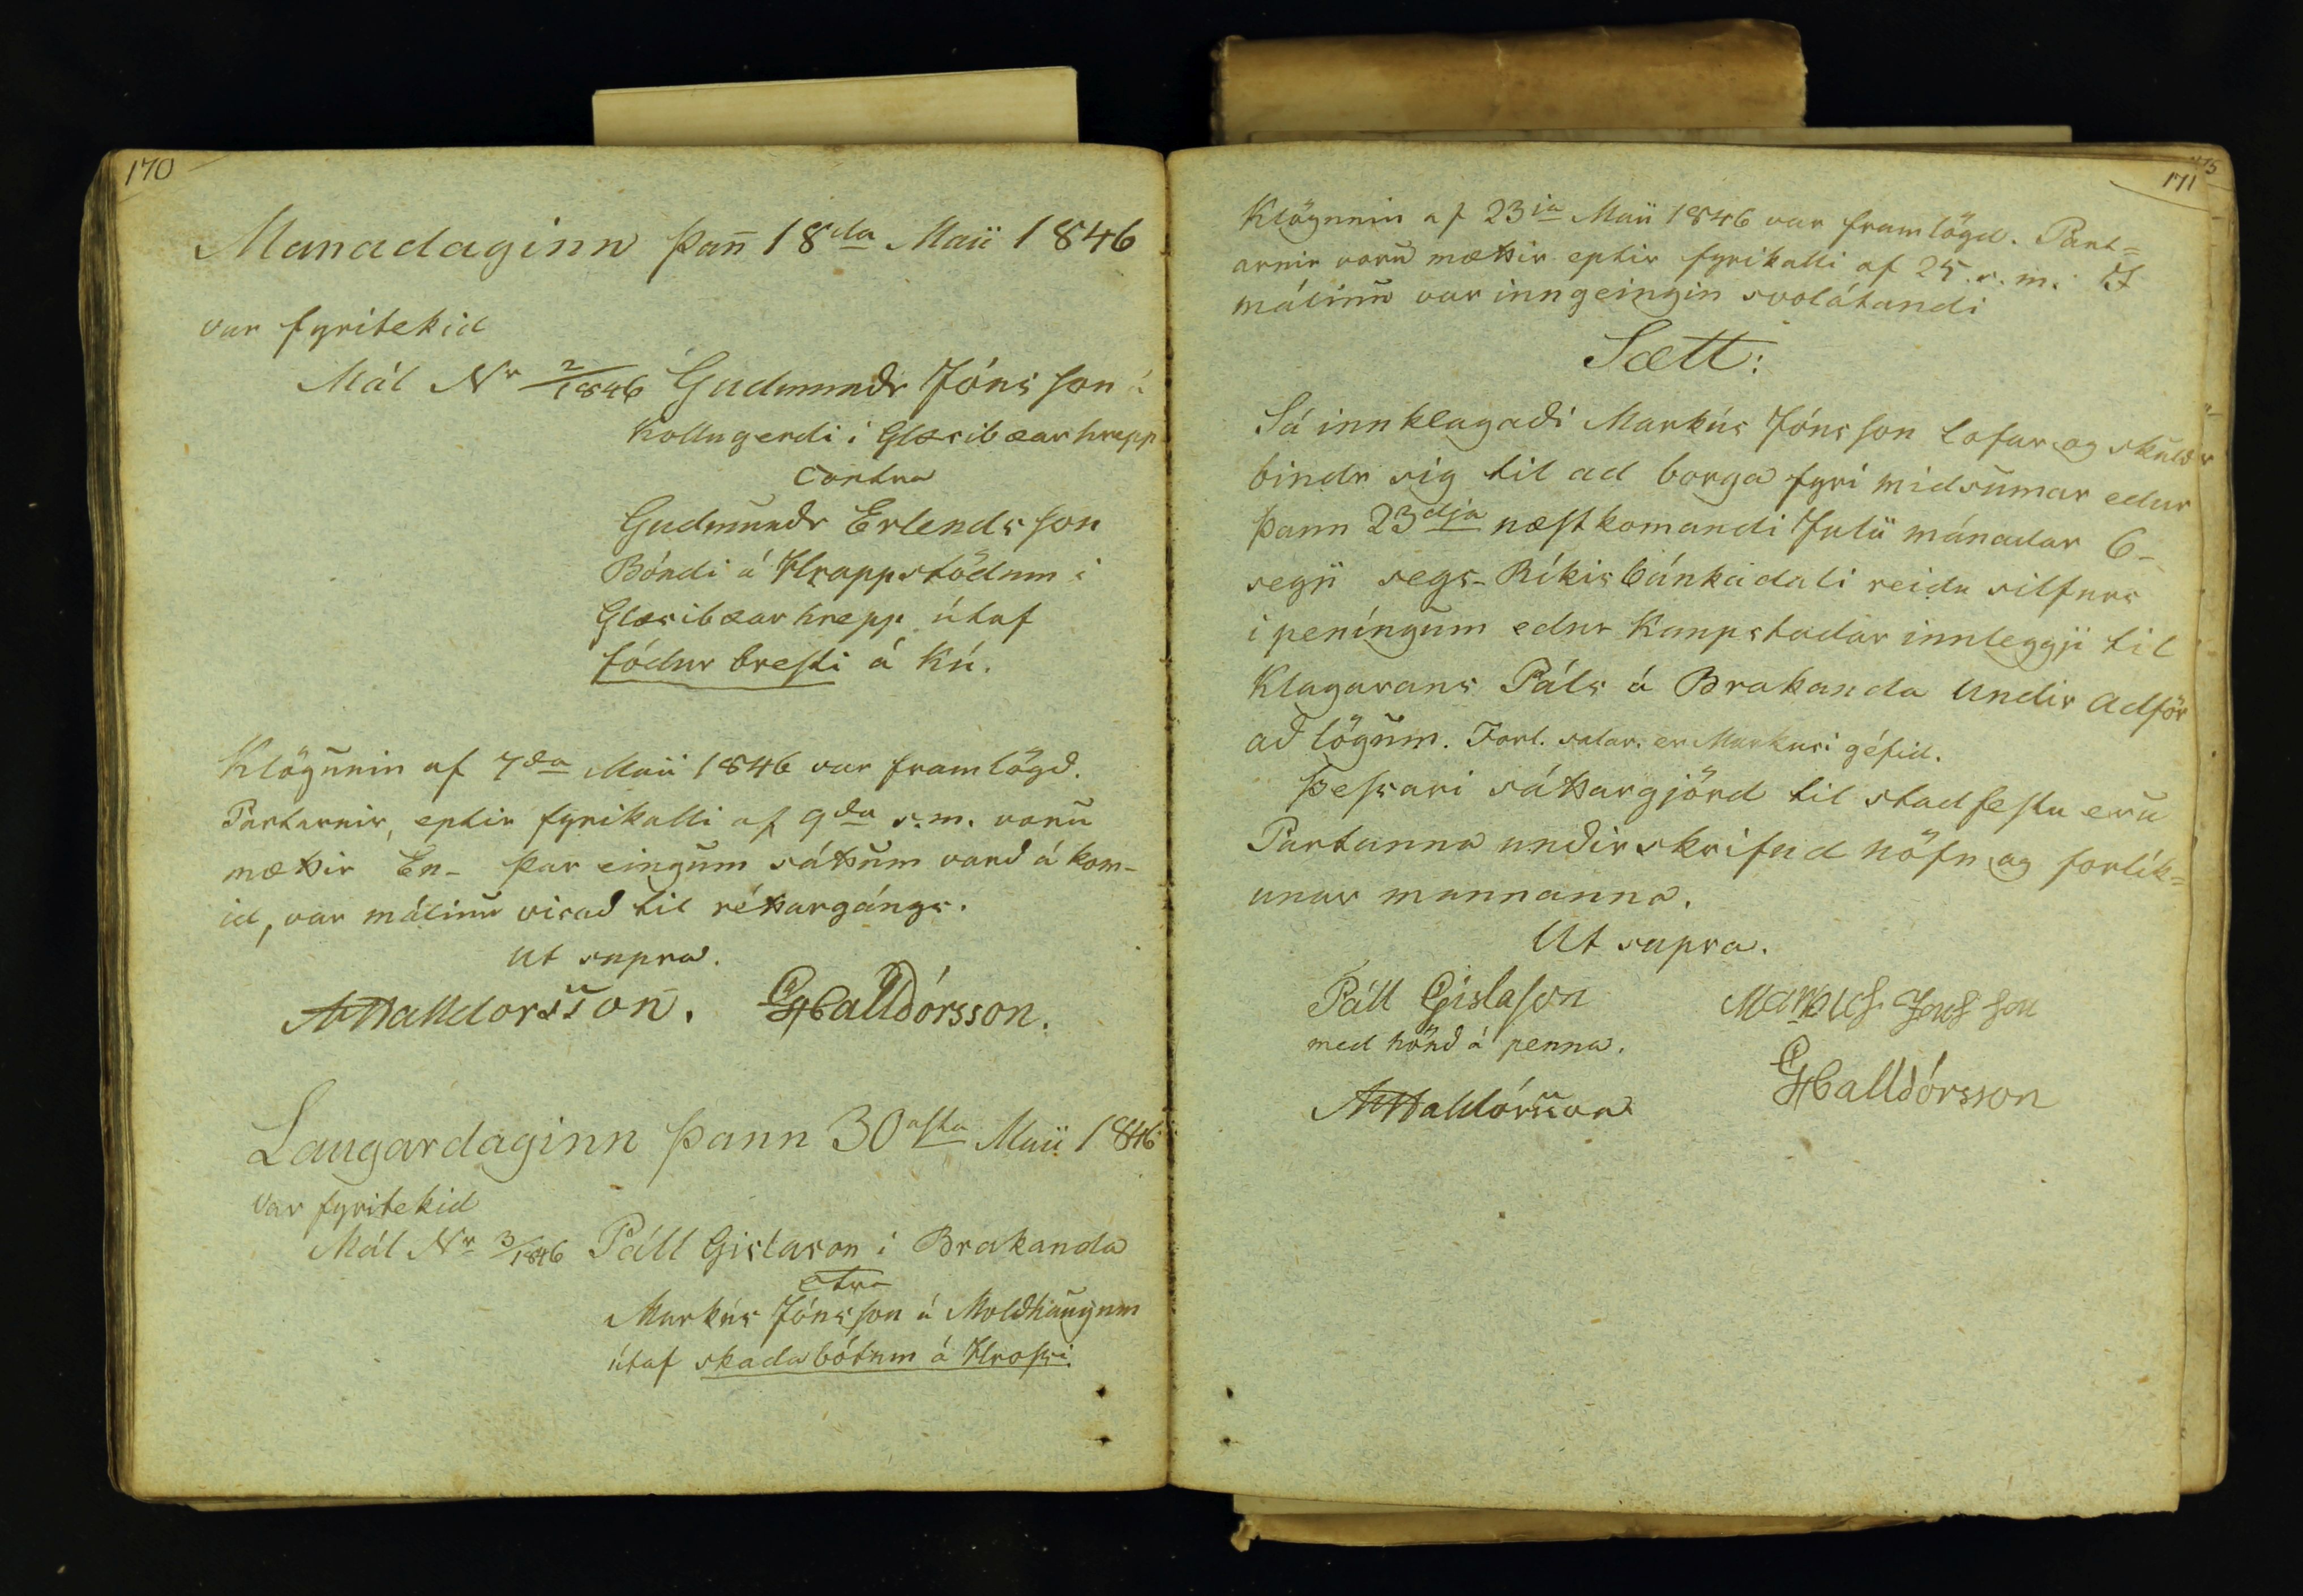 170
Manadaginn þan̄ 18da Maii 1846
var fyritekid
Mál Nr 2/1846 Gudmundr Jónsson í
Kollugerdi í Glæsibæarhrepp
contra
Gudmundr Erlendsson
Bóndi á Krappstödum í
Glæsibæarhrepp útaf
fódur bresti á Kú.
Klögunin af 7da Maii 1846 var framlögð.
Partarnir, eptir fyrikalli af 9da s.m. voru
mættir En- þar eingum sáttum varð á kom-
id, var málinu visað til réttargángs.
Ut supra.
AHalldorsson. GHalldórsson.
Laugardaginn þann 30asta Maii 1846
var fyritekid
Mál Nr 3/1846 Páll Gislason í Brakanda
ctra
Markús Jónsson á Moldhaugum
útaf skadabótum á Hrossi.
171
Klögunin af 23ia Maii 1846 var framlögd. Part=
arnir voru mættir eptir fyrikalli af 25. s. m. Í
málinu var inngeingin svolátandi
Sætt:
Sá innklagaði Markús Jónsson lofar og skuld
bindr sig til ad borga fyri midsumar edur
þann 23dja næstkomandi Julii mánadar 6-
segji segs- Ríkisbánkadali reidu silfurs
í peníngum edur Kaupstadar innleggji til
Klagarans Páls á Brakanda Undir Adför
að lögum. Forl. salar. er Markusi géfid.
Þessari sáttargjörd til stadfestu eru
Partanna undirskrifud nöfn og forlík=
unar mannanna.
Ut supra.
Páll Gislason Markus Jonsson
med hönd á penna.
AHalldórsson GHalldórsson